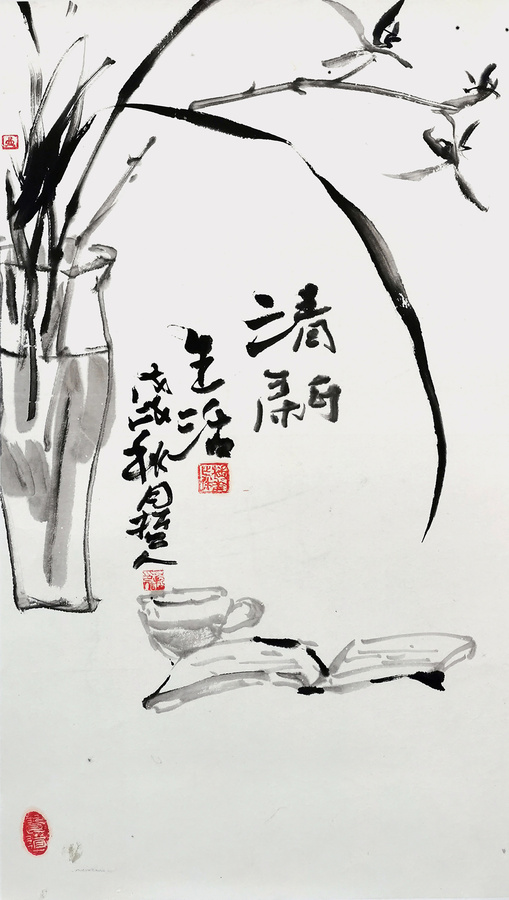 清新
生活
戊戌秋月哲人